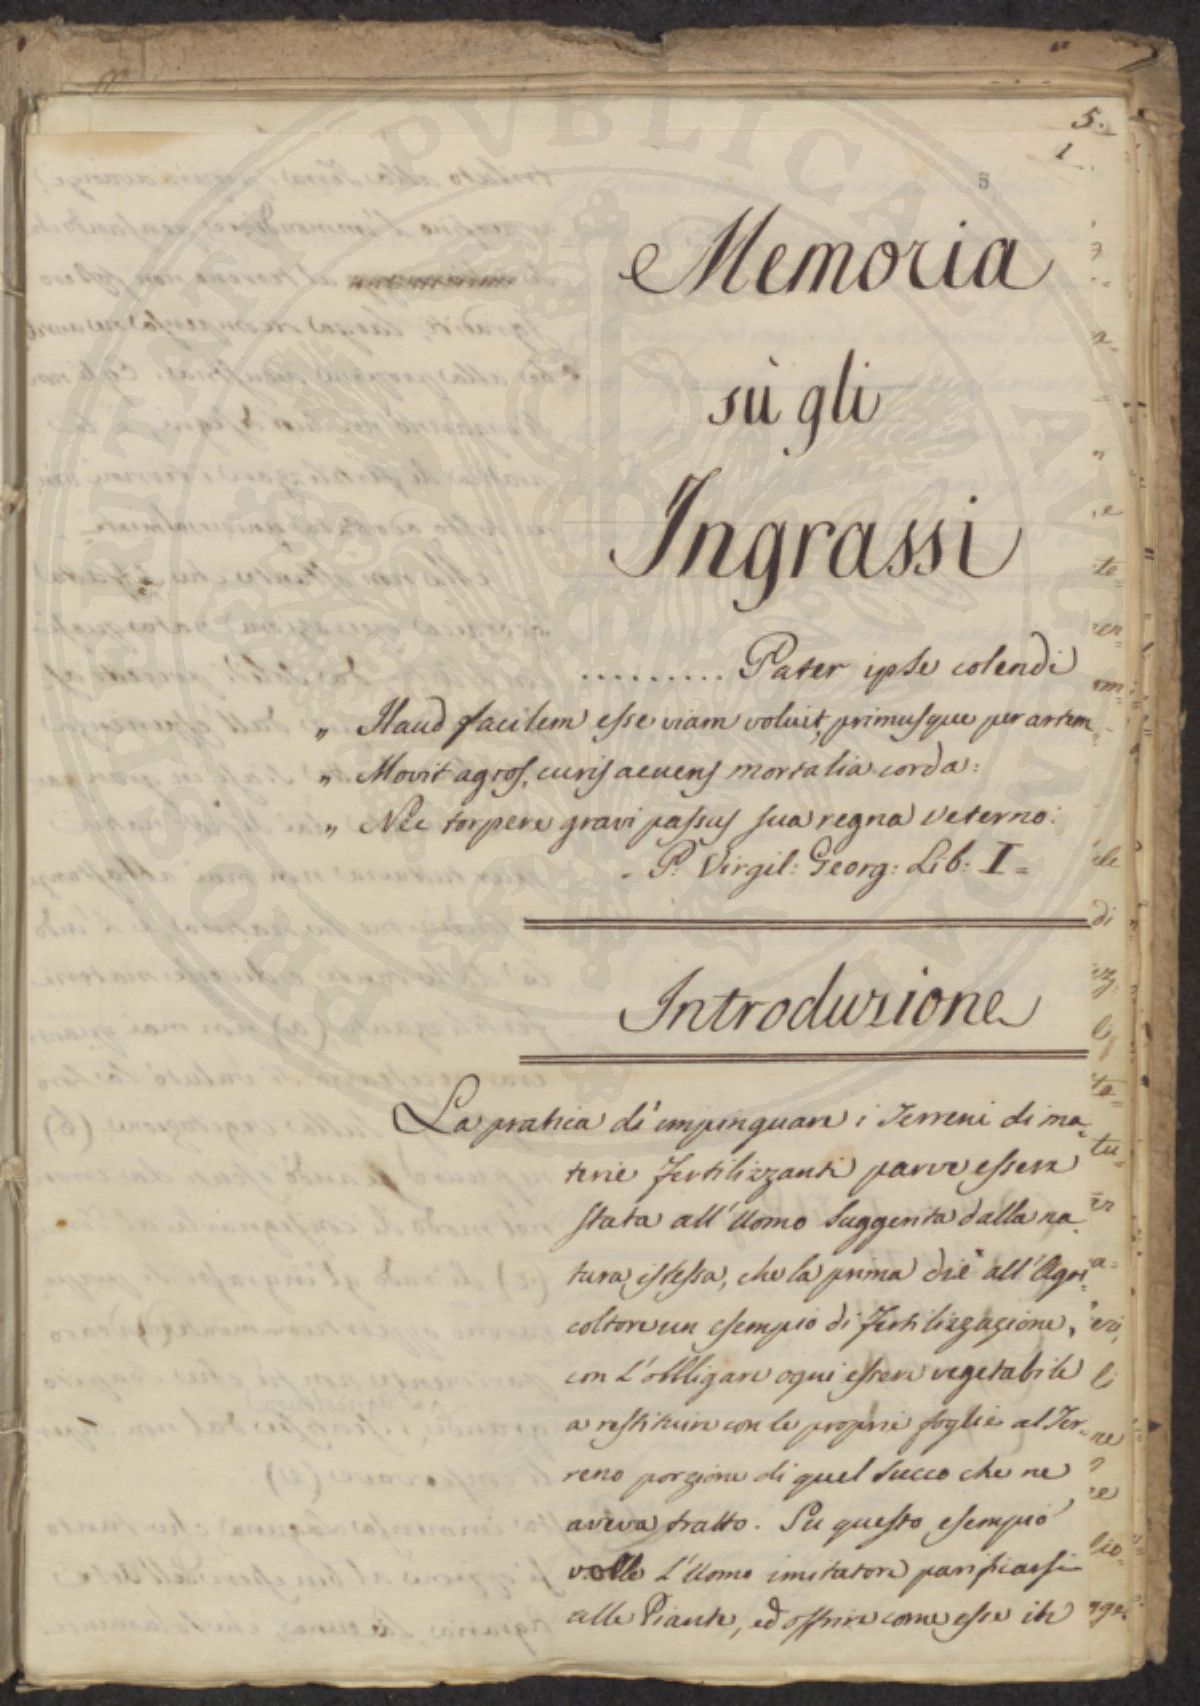 5.
1
8
Memoria
sù gli
Ingrassi
.......... Pater ipse colendi
„ Haud facilem esse viam voluit, primusque per artem
„ Movit agros, curis acuens mortalia corda:
„ Nec torpere gravi passus sua regna veterno:
P. Virgil: Georg: Lib: I =
Introduzione
La pratica d'impinguare i Terreni di ma=
terie fertilizzanti parve essere
stata all'Uomo suggerita dalla na=
tura istessa, che la prima diè all'Agri=
coltore un esempio di fertilizzazione,
con l'obbligare ogni essere vegetabile
a restituire con le proprie foglie al Ter=
reno porzione di quel succo che ne
aveva tratto. Su questo esempio
volle l'Uomo imitatore parificarsi
alle Piante, ed offrire come esse in
PROSPERITATI PVBLICAE AVGENDAE